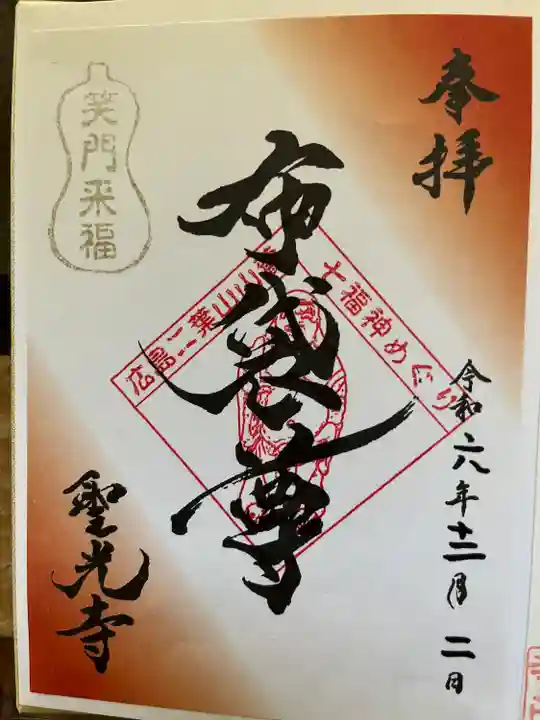 奉拝
令和六年十二月二日
七福神めぐり
広島二葉山山麓
布袋尊
笑門来福
聖光寺